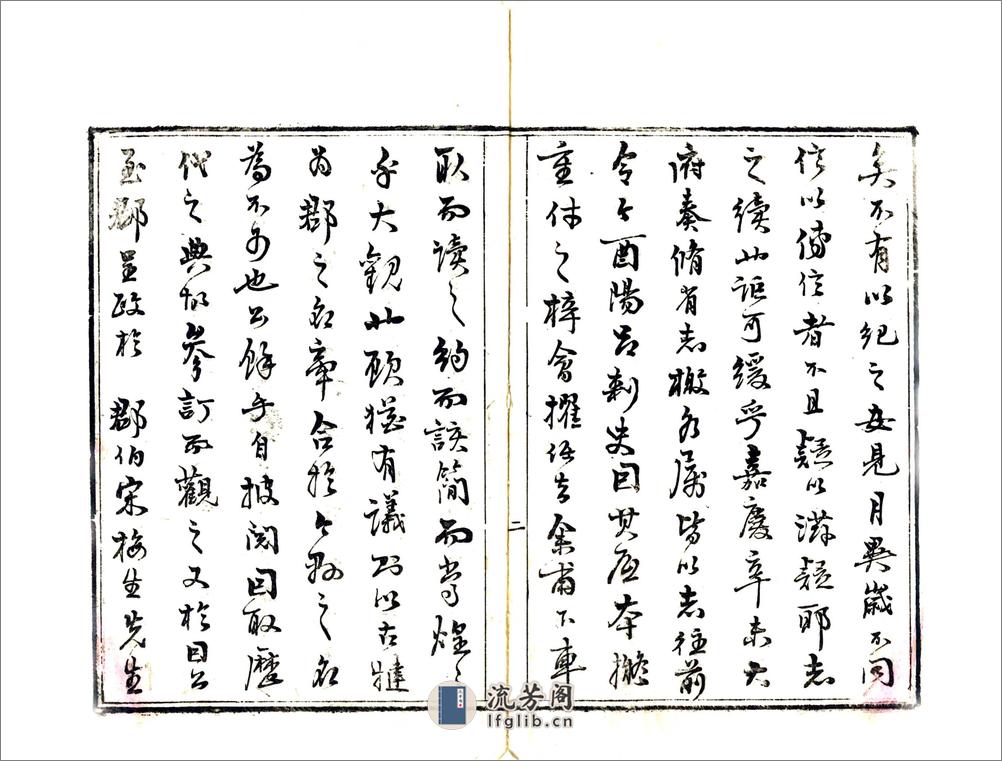 矣不有以紀之安見月異歲不同
信以傳信者不且疑以滋疑耶志
之續此詎可緩乎嘉慶辛未大
府奏脩省志檄各属皆以志往前
令今酉陽呂刺史因其底本攟
重付之梓會擢任去余甫下車
取而读之約而該簡而當煌〻
乎大觀此頋猶有議者以古𨗿
為郡之名率合於今縣之名
為不可也公餘手自披閱因取歷
代之典故參訂而觀之又於因公
至郡呈政於 郡伯宋梅生先生
二
流芳阁
lfglib.cn